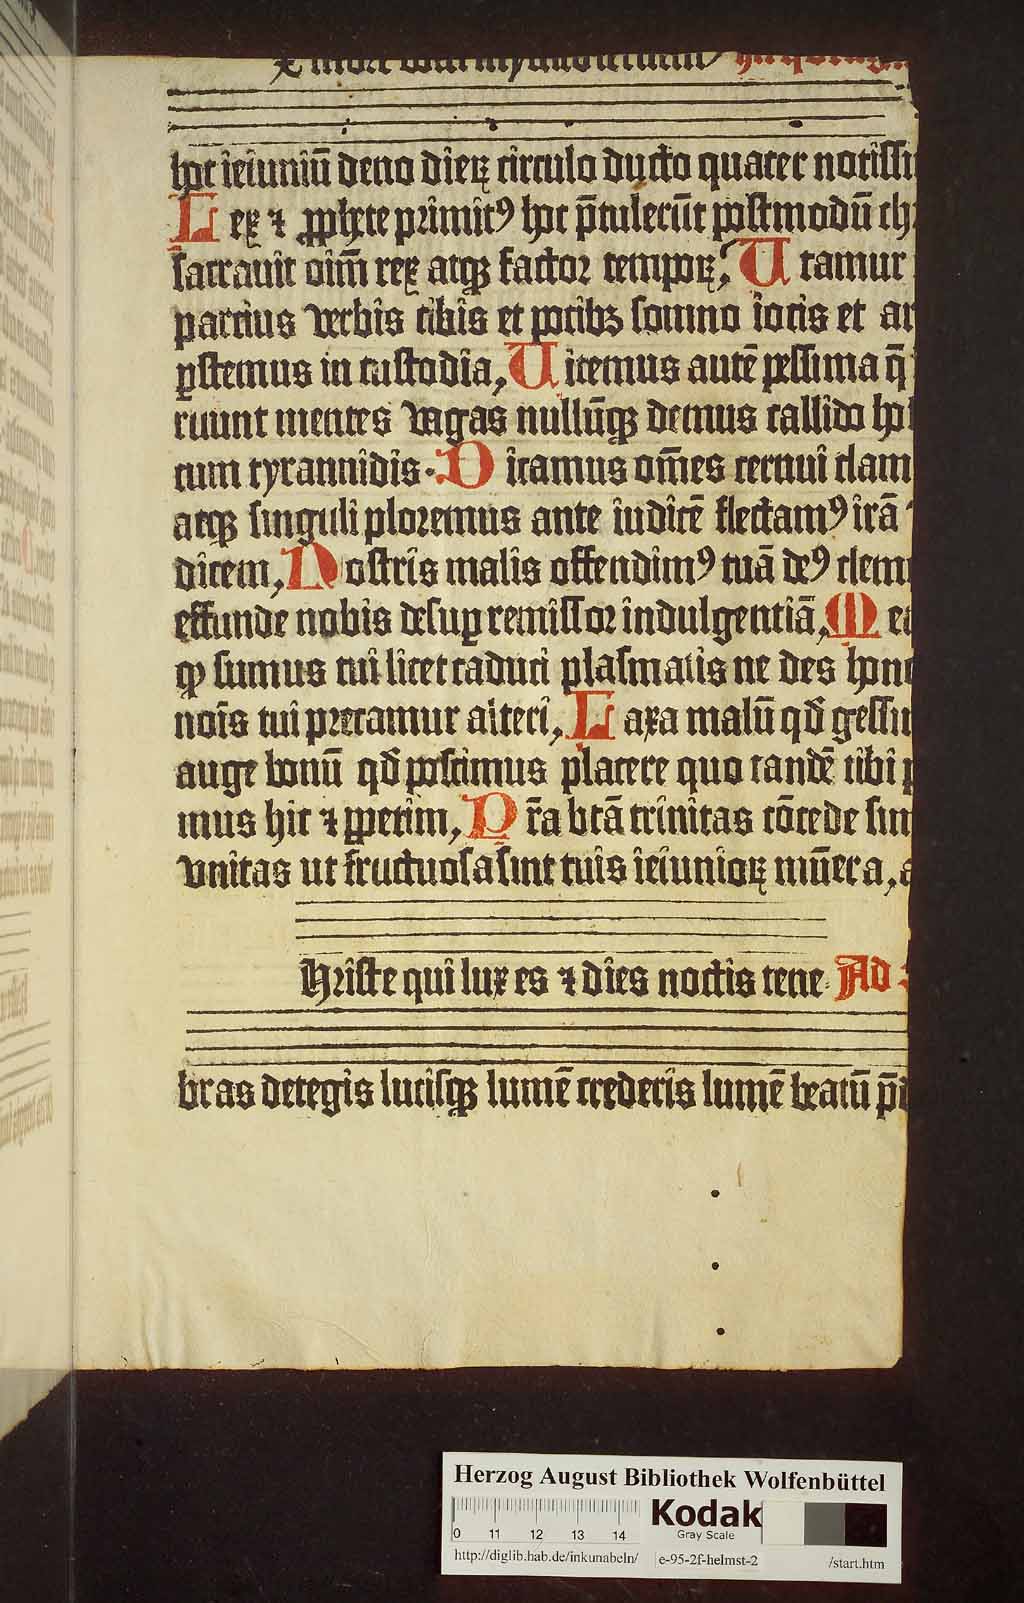 x more docti mystico seruemus
hoc ieiuniū deno dierꝝ circulo ducto quater notissi
Lex ⁊ ꝓphete primitꝰ hoc p̄tulerūt postmodū ch
sacrauit oīm rex atqꝫ factor temporꝝ, Utamur
parcius verbis cibis et potibꝫ somno iocis et ar
ꝑstemus in custodia, Uitemus autē pessima q̄
ruunt mentes vagas nullūqꝫ demus callido ho
cum tyrannidis. Dicamus om̄es cernui clam
atqꝫ singuli ploremus ante iudicē flectamꝰ irā
dicem, Nostris malis offendimꝰ tuā deꝰ clem
effunde nobis desuꝑ remissor indulgentiā, Me
ꝙ sumus tui licet caduci plasmatis ne des hono
noīs tui precamur alteri, Laxa malū qd̄ gessim
auge bonū qd̄ poscimus placere quo tandē tibi p
mus hic ⁊ ꝑpetim, Pr̄a btā trinitas cōcede sim
vnitas ut fructuosa sint tuis ieiuniorꝝ mūera, a
Hriste qui lux es ⁊ dies noctis tene Ad
bras detegis lucisqꝫ lumē crederis lumē beatū p̄
Herzog August Bibliothek Wolfenbüttel
Kodak
Gray Scale
0 11 12 13 14
http://diglib.hab.de/inkunabeln/ e-95-2f-helmst-2 /start.htm